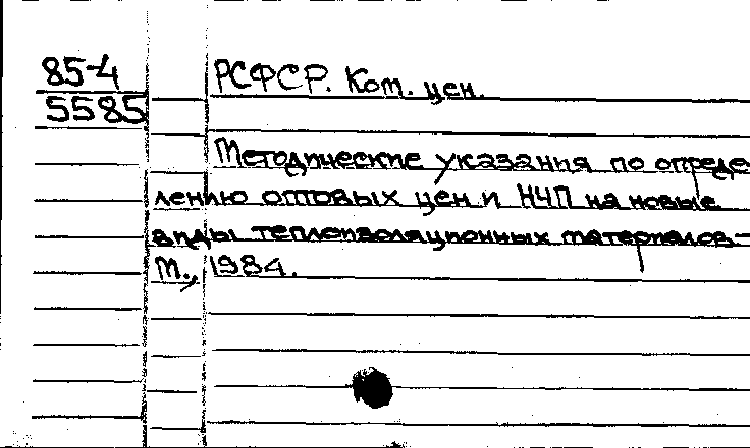 85-4
5585
РСФСР. Ком. цен.
Методические указания по опреде
лению оптовых цен и НЧП на новые
виды теплоизоляционных материалов-
М., 1984.